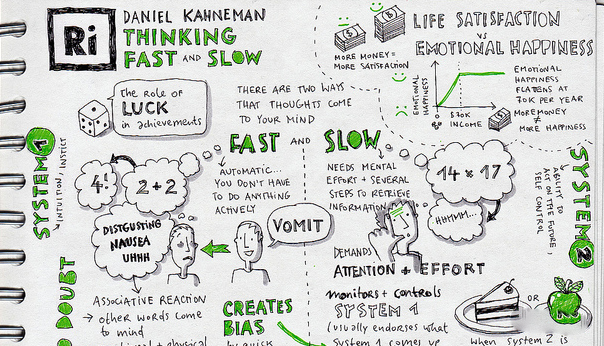 Ri
DANIEL KAHNEMAN
THINKING
FAST AND SLOW
The role of
LUCK
in achievements
THERE ARE TWO WAYS
THAT THOUGHTS COME
TO YOUR MIND
LIFE SATISFACTION
vs
EMOTIONAL HAPPINESS
MORE MONEY =
MORE SATISFACTION
EMOTIONAL
HAPPINESS
$70K
INCOME
EMOTIONAL
HAPPINESS
FLATENS AT
70K PER YEAR
MORE MONEY
MORE HAPPINESS
FAST AND SLOW
SYSTEM 1
INTUITION, INSTICT
4!
2+2
AUTOMATIC...
YOU DON'T HAVE
TO DO ANYTHING
ACTIVELY
DISTGUSTING
NAUSEA
UHHH
VOMIT
ASSOCIATIVE REACTION
→ other words come
to mind
+ physical
DOUBT
CREATES
BIAS
by quick
NEEDS MENTAL
EFFORT + SEVERAL
STEPS TO RETRIEVE
INFORMATION
14 × 17
HHMMM...
DEMANDS
ATTENTION + EFFORT
monitors + controls
SYSTEM 1
(usually endorses what
System 1 comes up
SYSTEM 2
ABILITY TO
ACT ON THE FUTURE,
SELF CONTROL
OR
When System 2 is